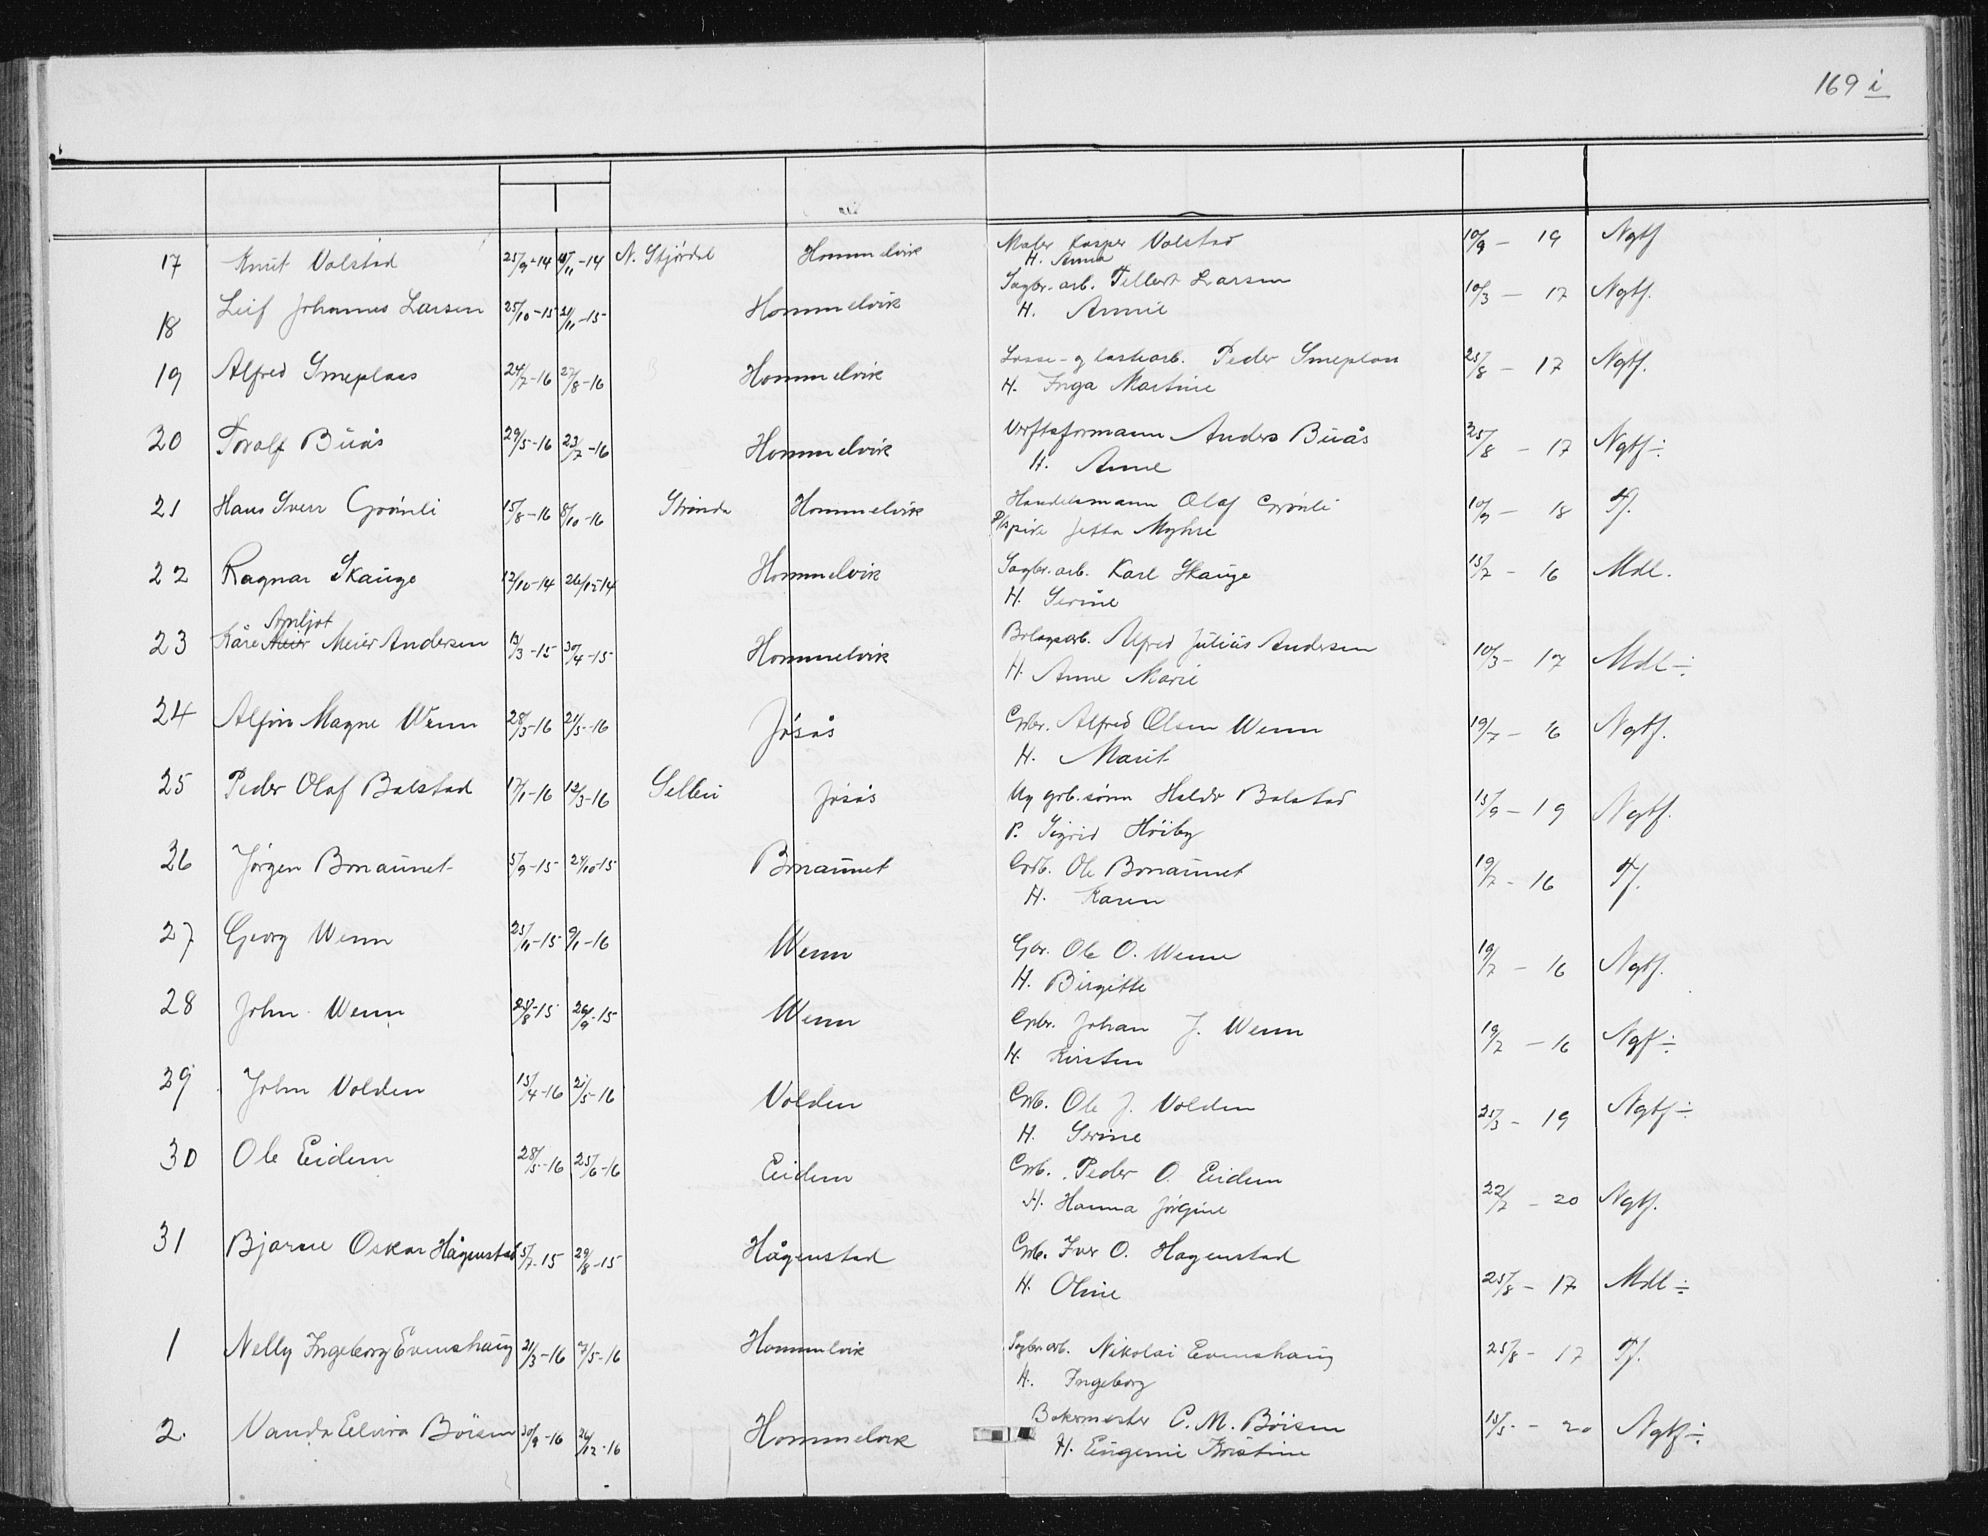 169 i
17 Knut Volstad 25/9-14 15/11-14 N. Stjørdal Hommelvik Maler Kasper Volstad 10/9 - 19 Ngtf
H. Anna
18 Leif Johannes Larsen 25/10-15 21/11-15 Hommelvik Sagbr. arb. Tellert Larsen 10/3 - 17 Ngtf.
H. Annie
19 Alfred Smeplass 24/7-16 27/8-16 Hommelvik Losse- og lastearb. Peder Smeplass 25/8 - 17 Ngtf.
H. Inga Martine
20 Toralf Buås 29/5-16 23/7-16 Hommelvik Verftsformann Anders Buås 25/8 - 17 Ngtf ÷
H. Anne
21 Hans Sverr Grønli 15/8-16 8/10-16 Strinda Hommelvik Handelsmann Olaf Grønli 10/9 - 18 Tf.
pike Jetta Myhre
22 Ragnar Skauge 12/10-14 26/12-14 Hommelvik Sagbr. arb. Karl Skauge 15/7 - 16 Mdl.
H. Serine
Arnljot
23 Kåre Meier Meier Andersen 13/3-15 30/4-15 Hommelvik Bolagsarb. Alfred Julius Andersen 10/3 - 17 Mdl ÷
H. Anne Marie
24 Alfin Magne Wenn 28/3-16 21/5-16 Jøsås Gbr. Alfred Olsen Wenn 19/7 - 16 Ngtf.
H. Marit
25 Peder Olaf Balstad 17/1-16 12/3-16 Selbu Jøsås Ug grb. sønn Haldor Balstad 15/9 - 19 Ngtf.
P. Sigrid Høiby
26 Jørgen Bonaunet 5/9-15 24/10-15 Bonaunet Grb. Ole Bonaunet 19/7 - 16 Tf.
H. Karen
27 Georg Wenn 25/11-15 9/1-16 Wenn Gbr. Ole O. Wenn 19/7 - 16 Ngtf.
H. Birgitte
28 John Wenn 21/8-15 26/9-15 Wenn Gbr. Johan J. Wenn 19/7 - 16 Ngtf ÷
H. Kirsten
29 John Volden 15/4-16 21/5-16 Volden Grb. Ole J. Volden 25/3 - 19 Ngtf ÷
H. Serine
30 Ole Eidem 28/5-16 25/6-16 Eidem Grb. Peder O. Eidem 22/7 - 20 Ngtf.
H. Hanna Jørgine
31 Bjarne Oskar Hågenstad 5/7-15 29/8-15 Hågenstad Grb. Iver O. Hagenstad 25/8 - 17 Mdl ÷
H. Oline
1 Nelly Ingeborg Evenshaug 21/3-16 7/5-16 Hommelvik Sagbr. arb. Nikolai Evenshaug 25/8 - 17 Tf.
H. Ingeborg
2. Vanda Elvira Bøisen 30/9-16 26/12-16 Hommelvik Bakermester C. M. Bøisen 15/5 - 20 Ngtf ÷
H. Eugenie Kristine